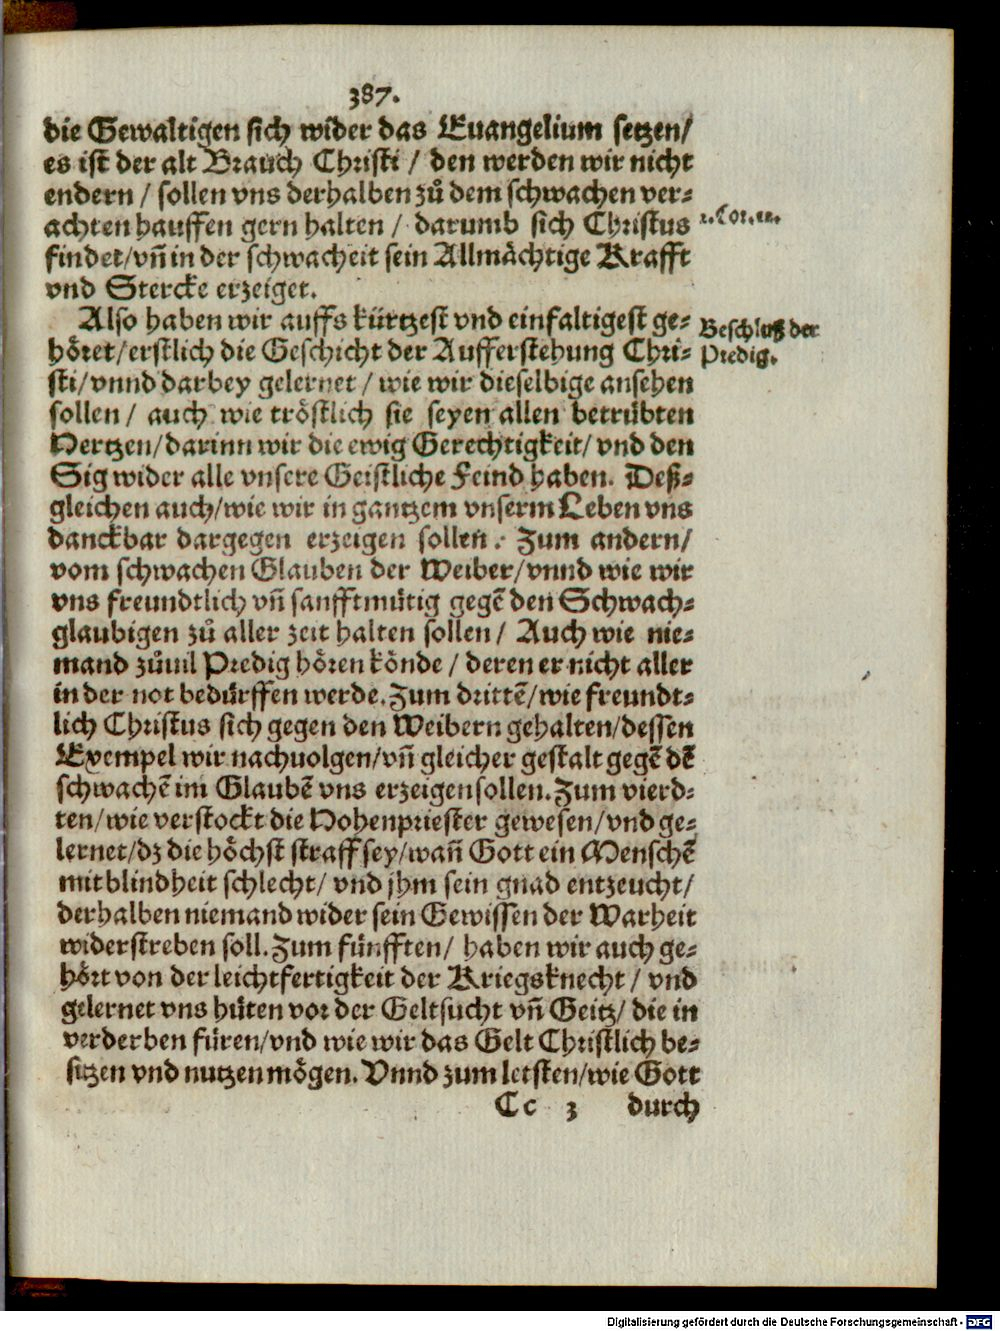 387.
die Gewaltigen sich wider das Euangelium setzen/
es ist der alt Brauch Christi / den werden wir nicht
endern / sollen vns derhalben zů dem schwachen ver-
achten hauffen gern halten / darumb sich Christus
findet/vñ in der schwacheit sein Allmächtige Krafft
vnd Stercke erzeiget.
Also haben wir auffs kürtzest vnd einfaltigest ge-
höret/erstlich die Geschicht der Aufferstehung Chri-
sti/vnnd darbey gelernet / wie wir dieselbige ansehen
sollen / auch wie tröstlich sie seyen allen betrübten
Hertzen/darinn wir die ewig Gerechtigkeit/ vnd den
Sig wider alle vnsere Geistliche Feind haben. Deß-
gleichen auch/wie wir in gantzem vnserm Leben vns
danckbar dargegen erzeigen sollen. Zum andern/
vom schwachen Glauben der Weiber/vnnd wie wir
vns freundtlich vñ sanfftmütig gegẽ den Schwach-
glaubigen zů aller zeit halten sollen / Auch wie nie-
mand zůuil Predig hören könde / deren er nicht aller
in der not bedürffen werde. Zum drittẽ/wie freundt-
lich Christus sich gegen den Weibern gehalten/dessen
Exempel wir nachuolgen/vñ gleicher gestalt gegẽ dẽ
schwachẽ im Glaubẽ vns erzeigen sollen. Zum vierd-
ten/wie verstockt die Hohenpriester gewesen/vnd ge-
lernet/dz die höchst straff sey/wañ Gott ein Menschẽ
mit blindheit schlecht/ vnd jhm sein gnad entzeucht/
derhalben niemand wider sein Gewissen der Warheit
widerstreben soll. Zum fünfften/ haben wir auch ge-
hört von der leichtfertigkeit der Kriegsknecht / vnd
gelernet vns hüten vor der Geltsucht vñ Geitz/ die in
verderben füren/vnd wie wir das Gelt Christlich be-
sitzen vnd nutzen mögen. Vnnd zum letsten/wie Gott
Cc 3 durch
Cor.
Beschluß der
Predig.
Digitalisierung gefördert durch die Deutsche Forschungsgemeinschaft - DFG